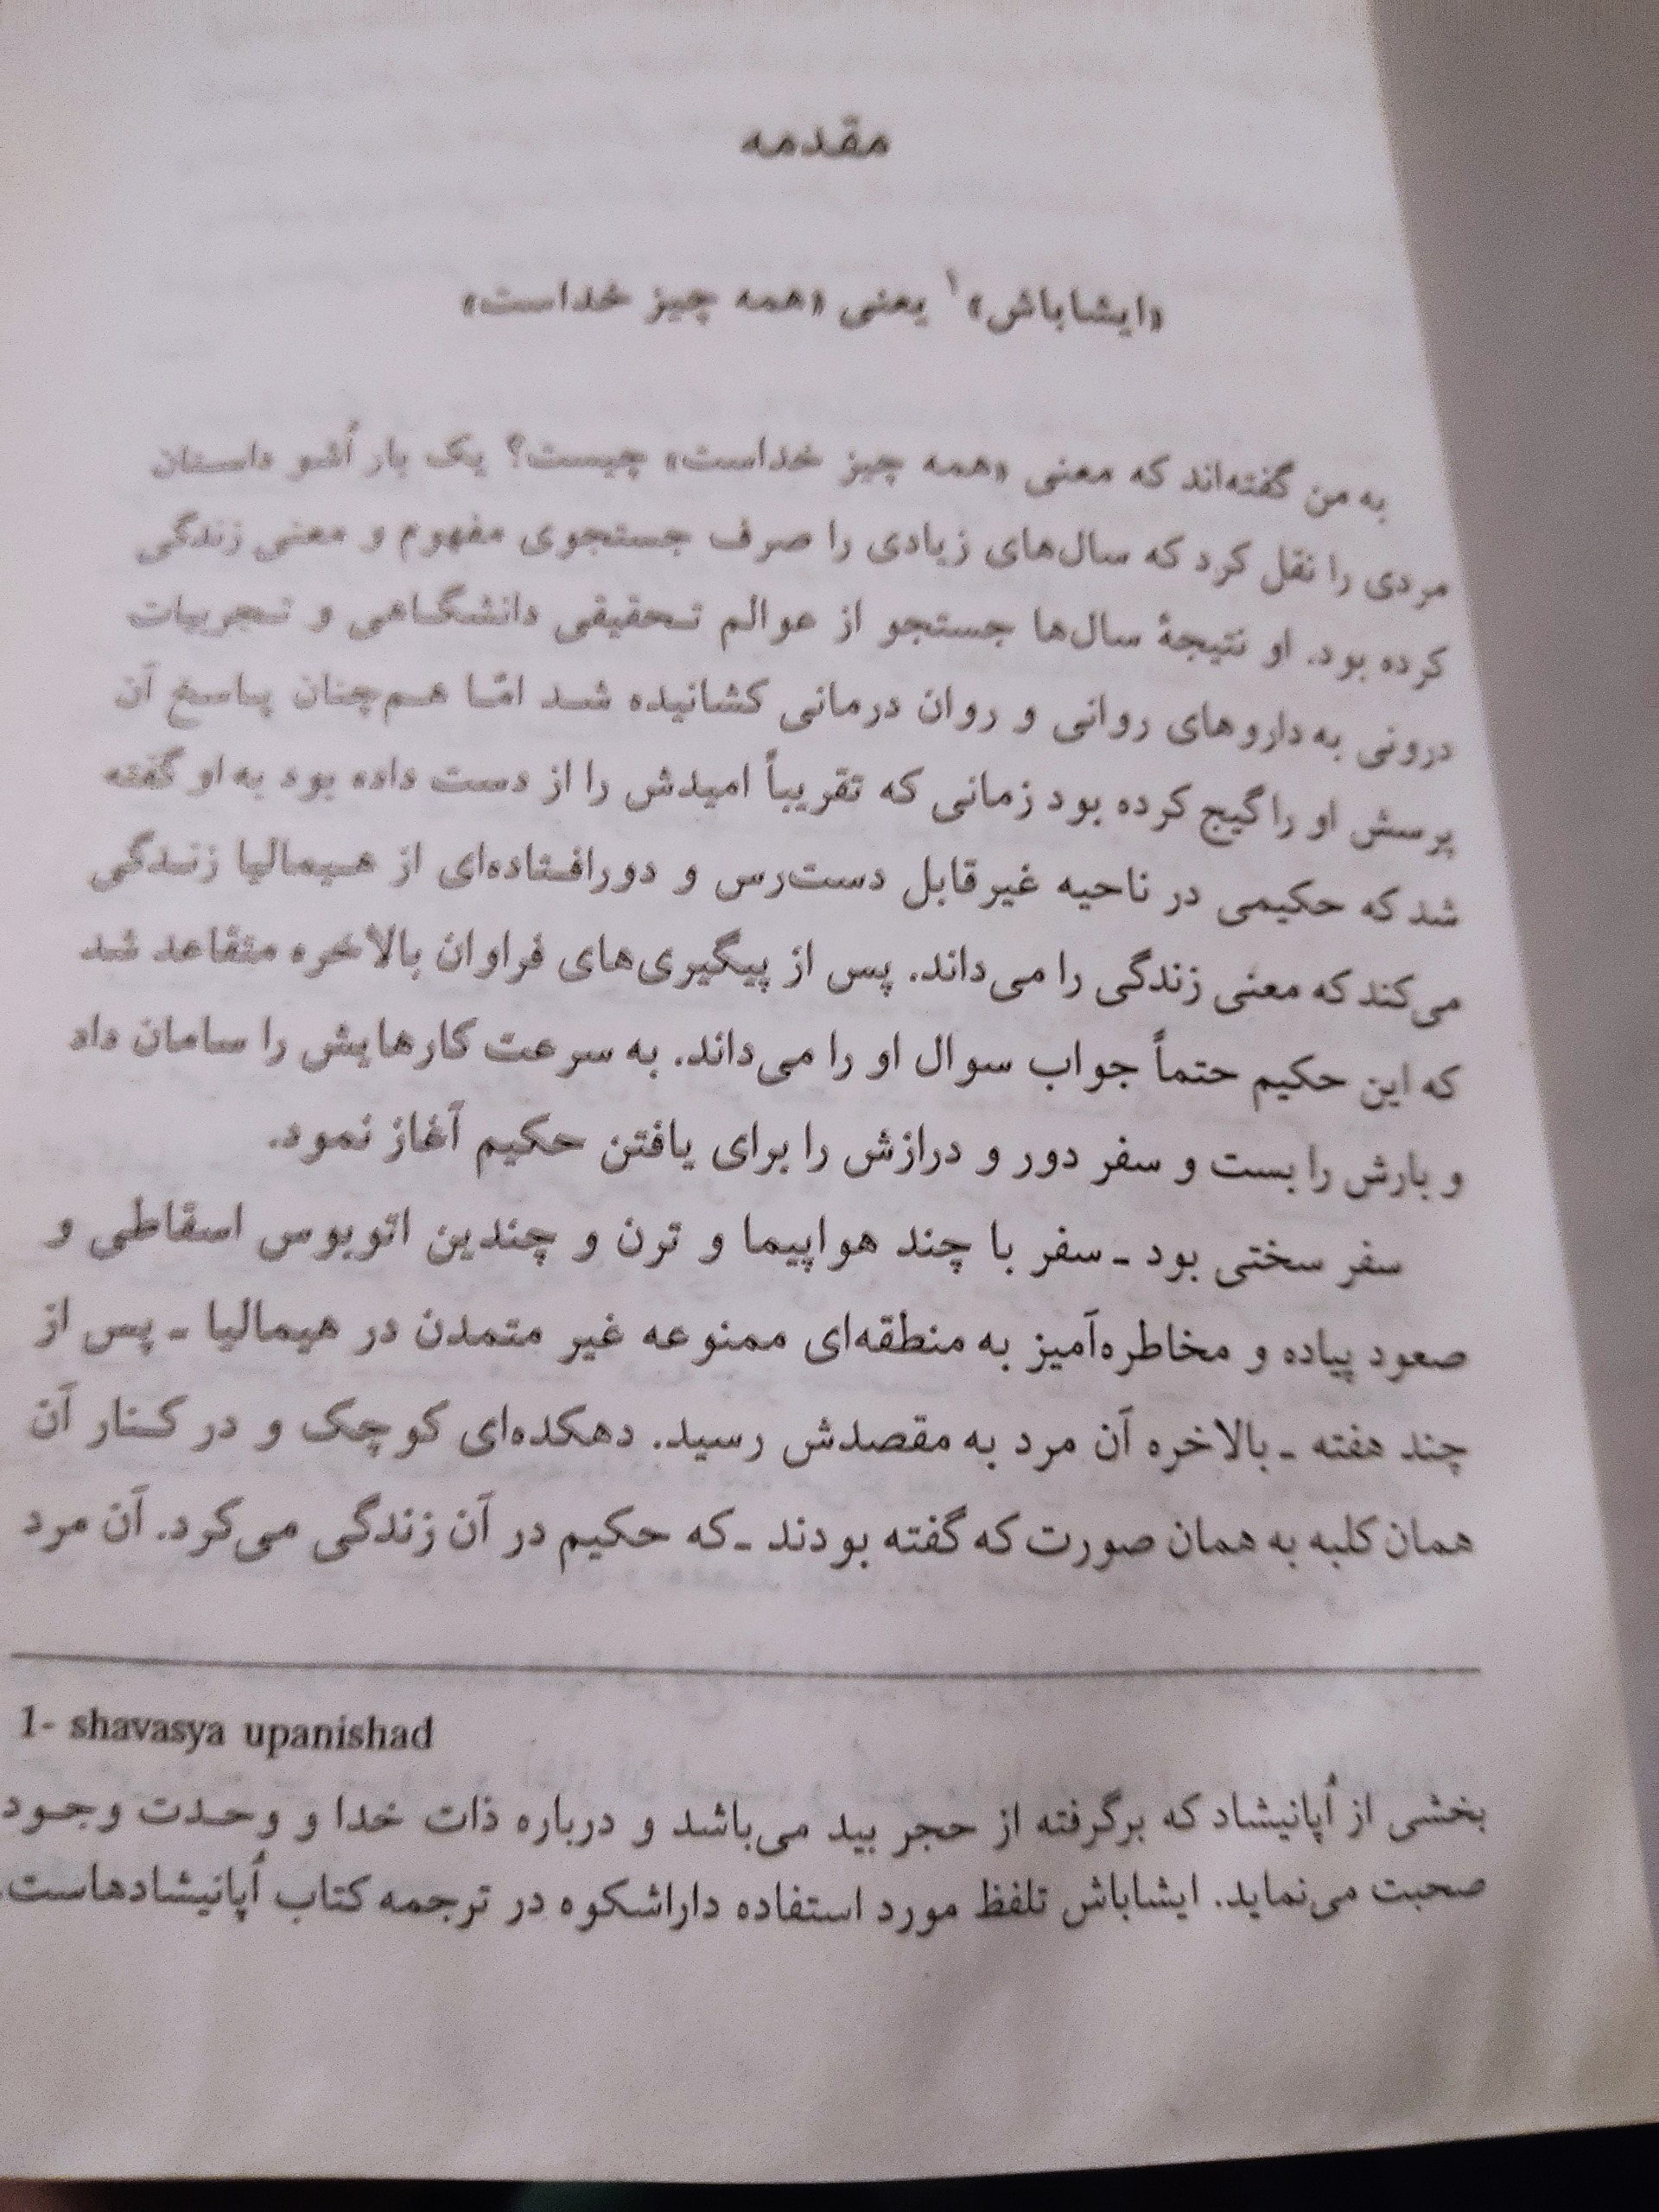 مقدمه
«ایشاباش»۱ یعنی «همه چیز خداست»
به من گفته‌اند که معنی «همه چیز خداست» چیست؟ یک بار اُشو داستان
مردی را نقل کرد که سال‌های زیادی را صرف جستجوی مفهوم و معنی زندگی
کرده بود. او نتیجهٔ سال‌ها جستجو از عوالم تحقیقی دانشگاهی و تجربیات
درونی به داروهای روانی و روان درمانی کشانیده شد امّا هم‌چنان پاسخ آن
پرسش او را گیج کرده بود زمانی که تقریباً امیدش را از دست داده بود به او گفته
شد که حکیمی در ناحیه غیرقابل دست‌رس و دورافتاده‌ای از هیمالیا زندگی
می‌کند که معنی زندگی را می‌داند. پس از پیگیری‌های فراوان بالاخره متقاعد شد
که این حکیم حتماً جواب سوال او را می‌داند. به سرعت کارهایش را سامان داد
و بارش را بست و سفر دور و درازش را برای یافتن حکیم آغاز نمود.
سفر سختی بود ـ سفر با چند هواپیما و ترن و چندین اتوبوس اسقاطی و
صعود پیاده و مخاطره‌آمیز به منطقه‌ای ممنوعه غیر متمدن در هیمالیا ـ پس از
چند هفته ـ بالاخره آن مرد به مقصدش رسید. دهکده‌ای کوچک و در کنار آن
همان کلبه به همان صورت که گفته بودند ـ که حکیم در آن زندگی می‌کرد. آن مرد
1- shavasya upanishad
بخشی از اُپانیشاد که برگرفته از حجر بید می‌باشد و درباره ذات خدا و وحدت وجود
صحبت می‌نماید. ایشاباش تلفظ مورد استفاده داراشکوه در ترجمه کتاب اُپانیشادهاست.